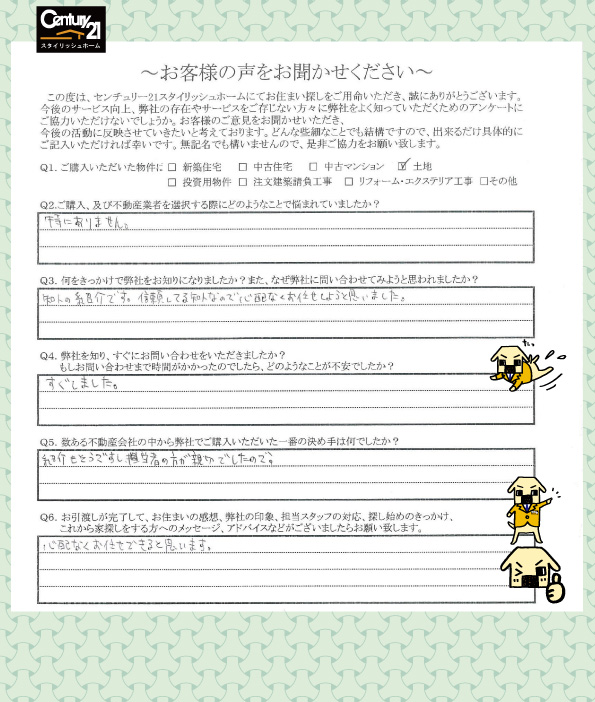 Century 21
スタイリッシュホーム
～お客様の声をお聞かせください～
この度は、センチュリー21スタイリッシュホームにてお住まい探しをご用命いただき、誠にありがとうございます。
今後のサービス向上、弊社の存在やサービスをご存じない方々に弊社をよく知っていただくためのアンケートに
ご協力いただけないでしょうか。お客様のご意見をお聞かせいただき、
今後の活動に反映させていきたいと考えております。どんな些細なことでも結構ですので、出来るだけ具体的に
ご記入いただければ幸いです。無記名でも構いませんので、是非ご協力をお願い致します。
Q1. ご購入いただいた物件に □ 新築住宅 □ 中古住宅 □ 中古マンション ☑ 土地
□ 投資用物件 □ 注文建築請負工事 □ リフォーム・エクステリア工事 □その他
Q2.ご購入、及び不動産業者を選択する際にどのようなことで悩まれていましたか？
特にありません。
Q3. 何をきっかけで弊社をお知りになりましたか？また、なぜ弊社に問い合わせてみようと思われましたか？
知人の紹介です。信頼してる知人なので心配なくお任せしようと思いました。
Q4. 弊社を知り、すぐにお問い合わせをいただきましたか？
もしお問い合わせまで時間がかかったのでしたら、どのようなことが不安でしたか？
すぐしました。
Q5. 数ある不動産会社の中から弊社でご購入いただいた一番の決め手は何でしたか？
紹介もそうですし担当者の方が親切でしたので。
Q6. お引渡しが完了して、お住まいの感想、弊社の印象、担当スタッフの対応、探し始めのきっかけ、
これから家探しをする方へのメッセージ、アドバイスなどがございましたらお願い致します。
心配なくお任せできると思います。